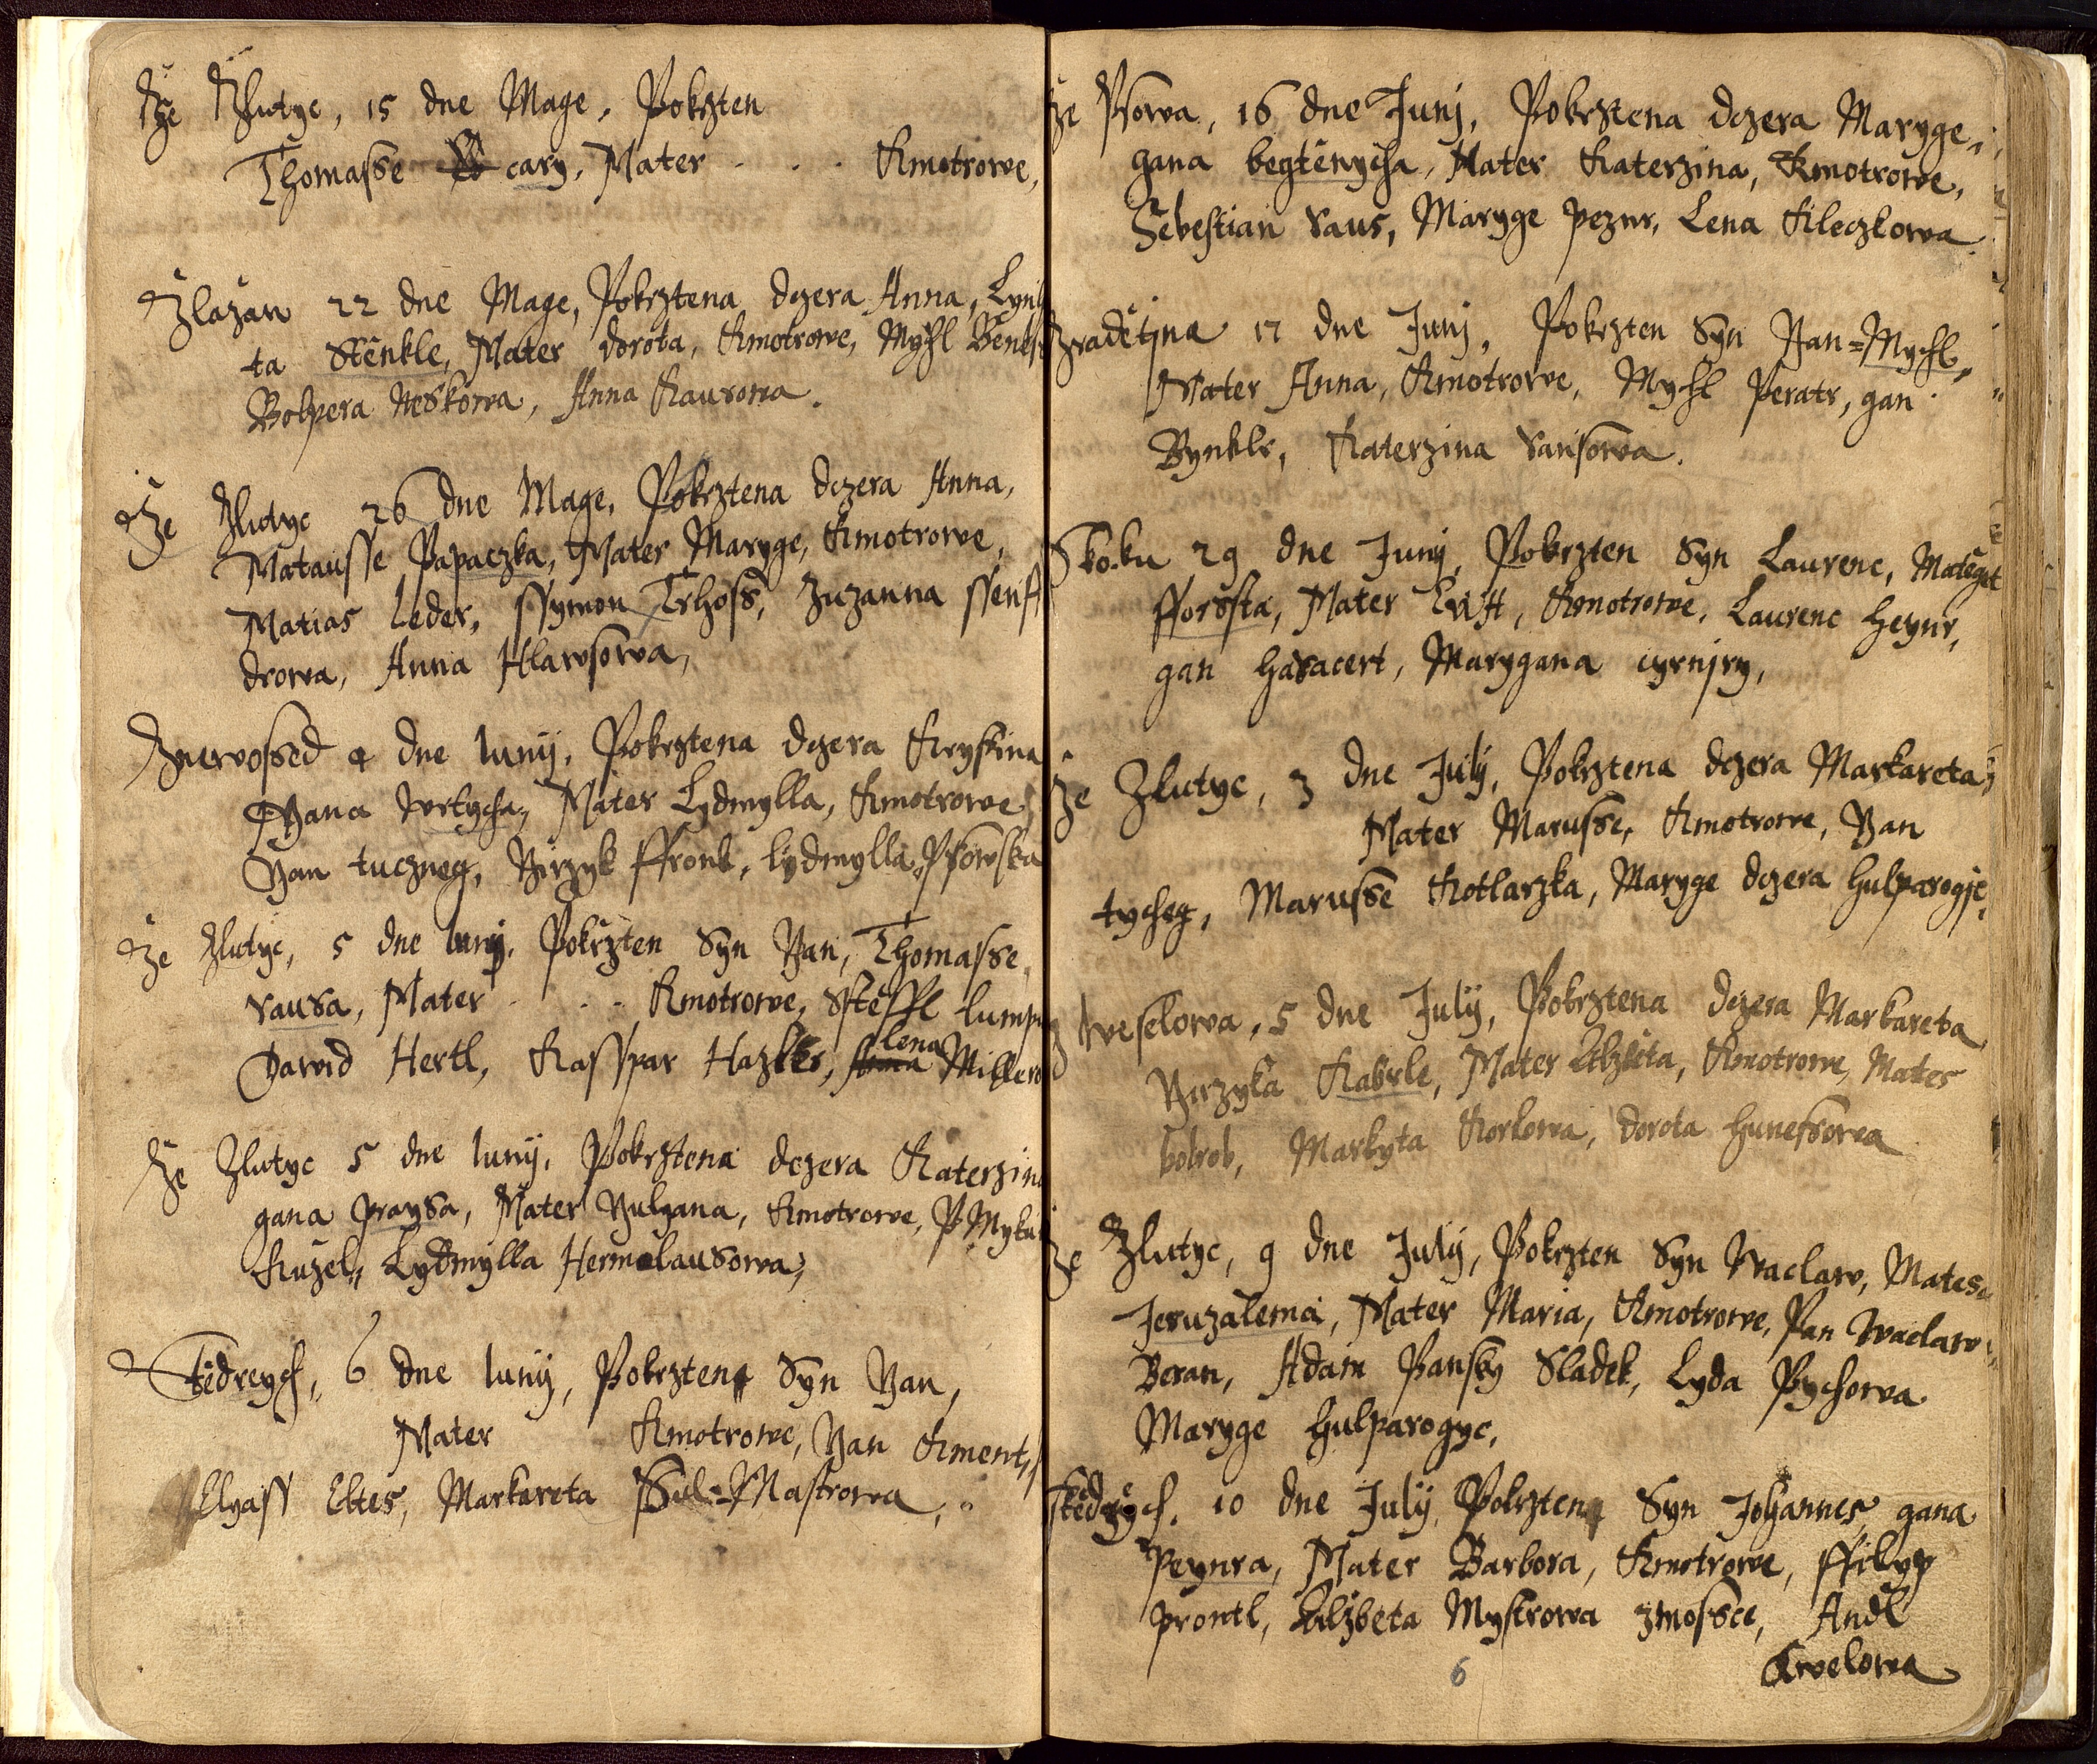 Ze Zlutyc, 15 dne Mage, Pokrzten
Thomasse cary, Mater . . . Kmotrowe,
Zlazan 22 dne Mage, Pokrztena dczera Anna, Lynh
ta Stenkle, Mater dorota, Kmotrowe, Mychl Beness
Bolpera Neskowa, Anna Kaurowa.
Ze Zlutyc 26 dne Mage, Pokrztena dczera Anna,
Matausse Papaczka, Mater Maryge, Kmotrowe,
Matias Leder, ssymon Trhoss, Zuzanna ssenft
drowa, Anna Hlawsowa,
Znewossed 4 dne Iunij, Pokrztena dczera Krystina
Yana Wrtycha, Mater Lydmylla, Kmotrowe,
Yan tuczneg, Yirzyk ffronk, lydmylla Psowska
Ze Zlutyc, 5 dne Iunij, Pokrzten Syn Yan, Thomasse
sausa, Mater . . . Kmotrowe, Steffl Lump
Dawid Hertl, Kasspar Hazlkr, lena Millero
Ze Zlutyc 5 dne Iunij, Pokrztena dczera Katerzina
gana prausa, Mater Yulyana, Kmotrowe, P Myku
Kuzel, Lydmylla Hermalausowa,
Stedreych, 6 dne Iunij, Pokrzten Syn Yan,
Mater Kmotrowe, Yan Kment,
Elyass Ebtes, Markareta Sul=Mastrowa,
ze Psowa, 16 dne Junj, Pokrztena dczera Maryge,
gana begtenycha, Mater Katerzina, Kmotrowe,
Sebestian saus, Maryge peznr, Lena Kleczkowa.
Zradetjna 17 dne Junj, Pokrzten Syn Yan=Mychl,
Mater Anna, Kmotrowe, Mychl Peratr, gan
Bynklr, Katerzina sausowa.
Skoku 29 dne Junij, Pokrzten Syn Laurenc, Mategie
fforssta, Mater Ewa, Kmotrowe, Laurenc Heynr,
gan Hasacert, Marygana cyrnjry,
Ze Zlutyc, 3 dne Julij, Pokrztena dczera Markareta,
Mater Marusse, Kmotrowe, Yan
tycheg, Marusse Kotlarzka, Maryge dczera Hulparogjc,
Z Weselowa, 5 dne Julij, Pokrztena dczera Markareta
Yirzyka Kabrle, Mater Elzbieta, Kmotrowe, Mates
bolrob, Markyta Korlowa, dorota Hunessowa
Ze Zlutyc, 9 dne Julij, Pokrzten Syn Waclaw, Matese
Jeruzalema, Mater Maria, Kmotrowe, Pan Waclaw
Beran, Adam Pansky Sladek, Lyda Pychowa
Maryge Hulparogyc,
Stedrych, 10 dne Julij, Pokrzten Syn Johannes gana
Peynra, Mater Barbora, Kmotrowe, ffilyp
prontl, Elzbeta Mystrowa zmossce, Andl
Kwelowa
6